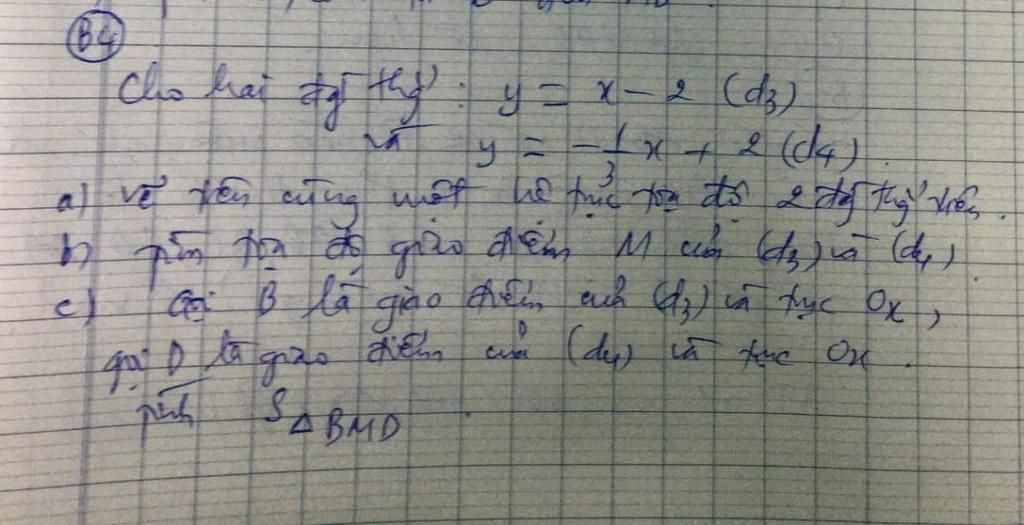 B4
Cho hai đg thg : y = x - 2 (d3)
và y = -1/3 x + 2 (d4)
a) vẽ trên cùng một hệ trục tọa độ 2 đg thg trên.
b) tìm tọa độ giao điểm M của (d3) và (d4)
c) Gọi B là giao điểm của (d3) và trục Ox,
gọi D là giao điểm của (d4) và trục Ox.
tính S△BMD